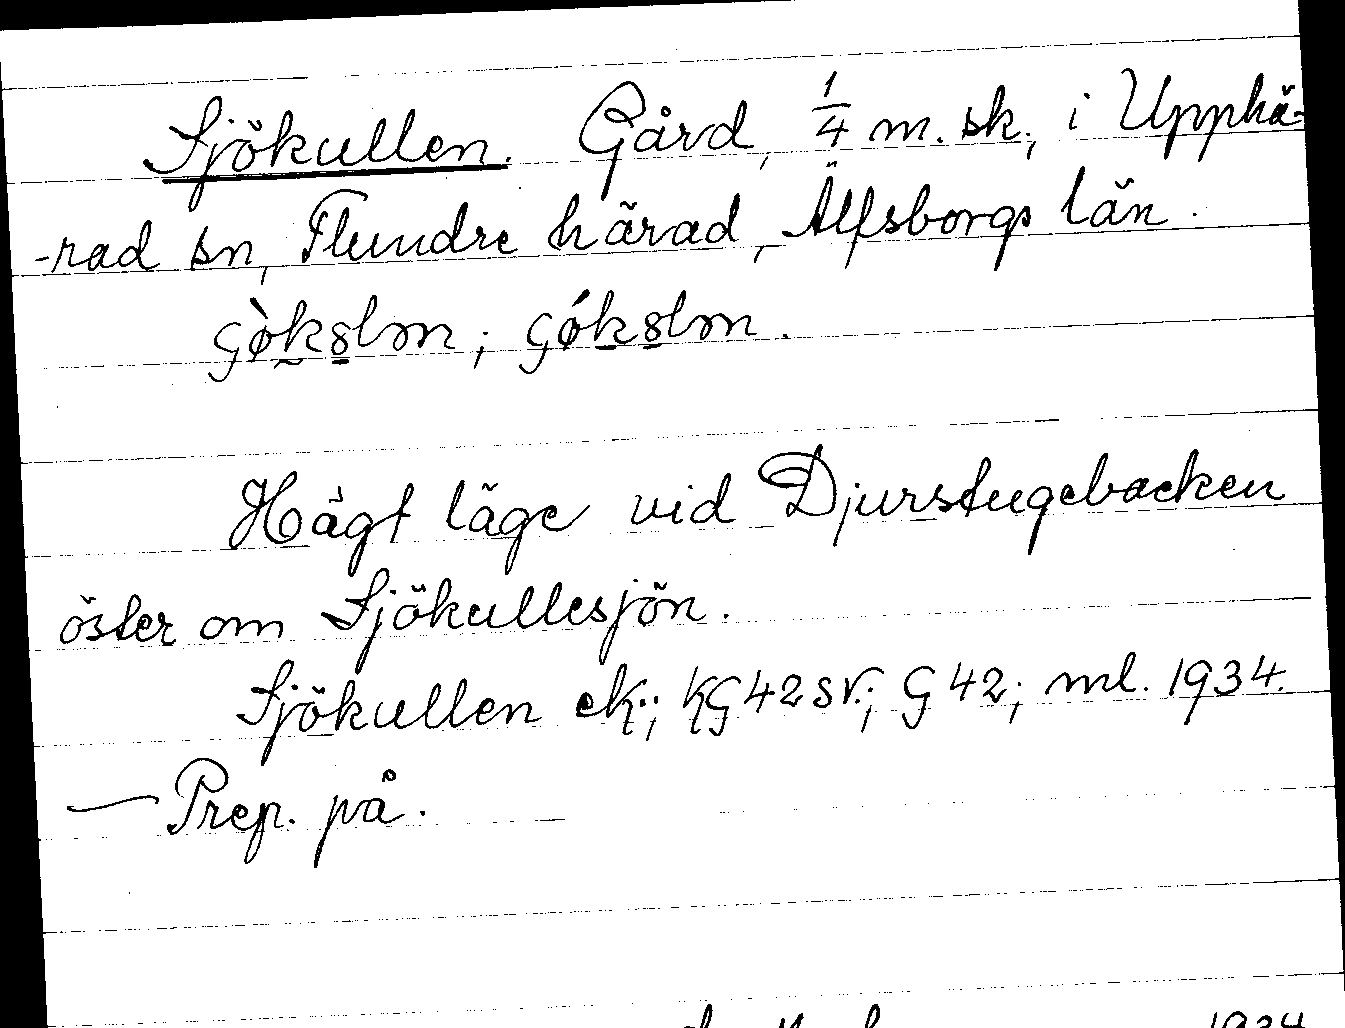 Sjökullen. Gård, 1/4 m. sk., i Upphä-
-rad sn, Flundre härad, Älfsborgs län.
Högt läge vid Djurstugebacken
öster om Sjökullesjön.
Sjökullen ek.; KG 42 sv.; G 42; ml. 1934.
— Prep. på.
1934